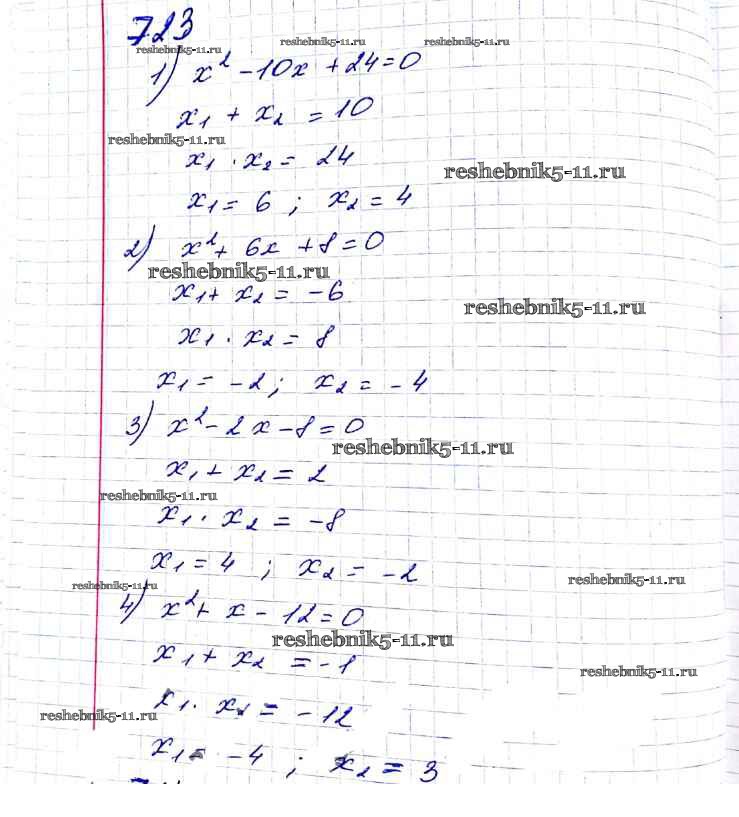 723
reshebnik5-11.ru reshebnik5-11.ru reshebnik5-11.ru
1) x² - 10x + 24 = 0
x₁ + x₂ = 10
reshebnik5-11.ru
x₁ · x₂ = 24
reshebnik5-11.ru
x₁ = 6 ; x₂ = 4
2) x² + 6x + 8 = 0
reshebnik5-11.ru
x₁ + x₂ = -6
reshebnik5-11.ru
x₁ · x₂ = 8
x₁ = -2 ; x₂ = -4
3) x² - 2x - 8 = 0
reshebnik5-11.ru
x₁ + x₂ = 2
reshebnik5-11.ru
x₁ · x₂ = -8
x₁ = 4 ; x₂ = -2
reshebnik5-11.ru reshebnik5-11.ru
4) x² + x - 12 = 0
reshebnik5-11.ru
x₁ + x₂ = -1
reshebnik5-11.ru
x₁ · x₂ = -12
reshebnik5-11.ru
x₁ = -4 ; x₂ = 3